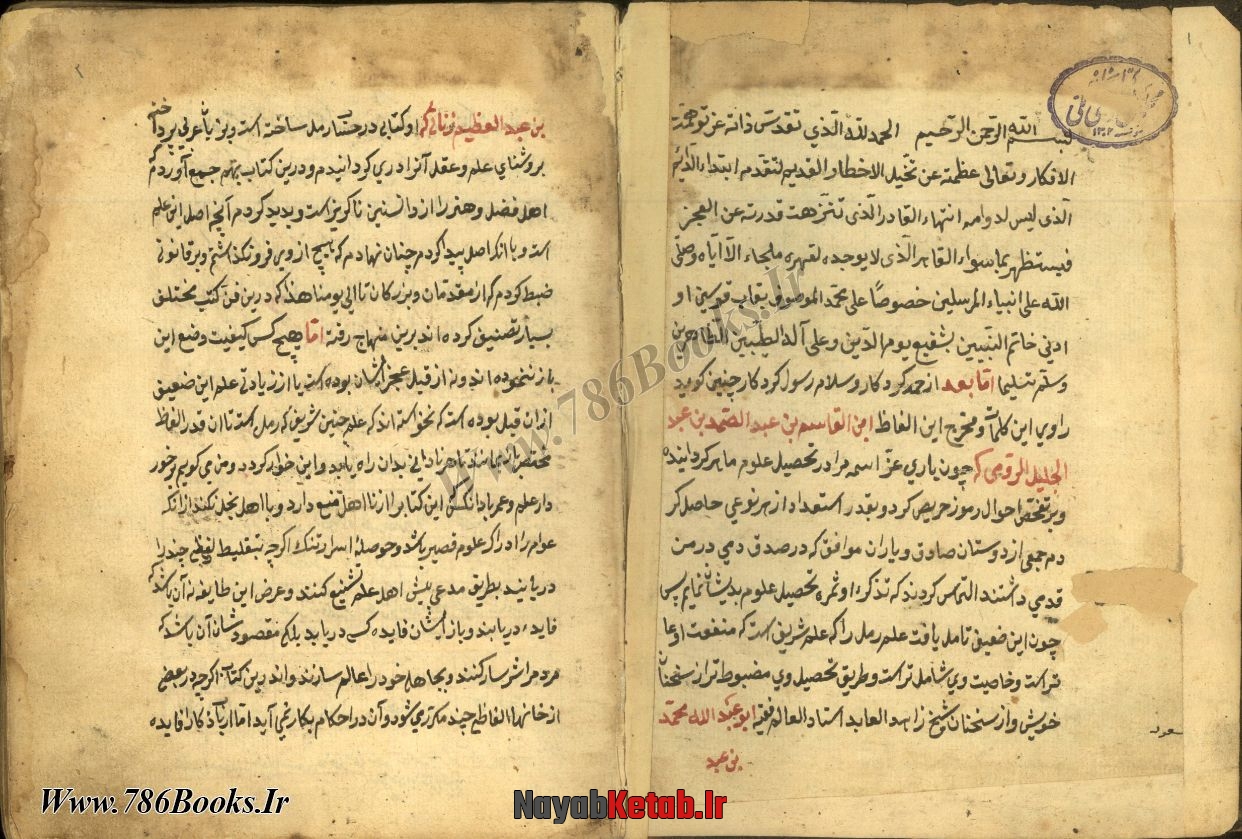 بسم الله الرحمن الرحیم الحمد لله الذي تقدس ذاته عن توهمت
الافکار وتعالی عظمته عن تخیل الاخطار والقدیم لتقدمه ابتداء الدائم
الذی لیس لدوامه انتهاء القادر الذی تنزهت قدرته عن العجز
فیستظهر بما سواء القاهر الذی لا یوجد لقهره ملجاء الا ایاه وصلی
الله علی انبیاء المرسلین خصوصا علی محمد الموصوف بقاب قوسین او
ادنی خاتم النبیین بشفیع یوم الدین وعلی آله الطیبین الطاهرین
وسلم تسلیما اما بعد از حمد کردکار وسلام رسول کردکار چنین کوید
راوی این کلمات ومخرج این الفاظ ابن القاسم بن عبد الصمد بن عبد
الجلیل الرقمی که چون باری عز اسمه مرا در تحصیل علوم ماهر کردانیده
وبر تفحص احوال رموز حریص کرد وبقدر استعداد از هر نوعی حاصل کر
دم جمعی از دوستان صادق ویاران موافق که در صدق دمی در من
قدمی داشتند التماس کردند که تذکره او ثمره تحصیل علوم بدیشان نمایم پس
چون این ضعیف تامل یافت علم رمل را که علم شریف است که منفعت او عا
تر است وخاصیت وی شامل تر است وطریق تحصیل وی مضبوط تر از سخنان
خویش واز سخنان شیخ زاهد العابد استاد العالم فقیه ابو عبد الله محمد
بن عبد
سعود
بن عبد العظیم زناتی که او کتابی در حساب رمل ساخته است وبزبان عربی پرداخته
بروشنای علم وعقل آنرا دری کردانیدم ودرین کتاب بهم جمع آوردم که
اهل فضل وهنر را از دانستن ناکویز است وپدید کردم آنچه اصل این علم
است وبا آنکه اصل پیدا کردم چنان نهادم که هیچ از وی فرو نکذاشتم وبر قانونی
ضبط کردم که از مقدمان وبزرکان تا الی یومنا هذا که درین فن کتب مختلف
بسیار تصنیف کرده اند برین منهاج رفته اما هیچ کس کیفیت وضع این
باز ننموده اند ونه از قبل عجز ایشان بوده است یا از زیادتی علم این ضعیف
از ان قبل بوده است که نخواسته اند که علم چنین شریف که رمل است تا ان قدر الفاظ
مختصر هر نادانی بدان راه یابد واین خوار کردد ومن می کویم برخور
دار علم وعمر باد انکس که این کتاب را از نااهل منع دارد وبا اهل بخل نکند از انکه
عوام را ادراک علوم قصیر باشد وحوصله اسرار تنک اکرچه بتقلید لفظی چند را
دریابند بطریق مدعی پیش اهل علم تشنیع کنند وغرض این طایفه نه آن باشد که
فایده دریابند وباز ایشان فایده کسب دریابد بلکه مقصود شان آن باشد که
مردم را شرسار کنند وبجاهل خود را عالم سازند واندرین کتاب اکرچه در بعضی
از خانها الفاظ چند مکرر می شود وآن در احکام بکار نمی آید اما ارباب ذکار فایده
Www.786Books.Ir
Www.786Books.Ir
NayabKetab.Ir